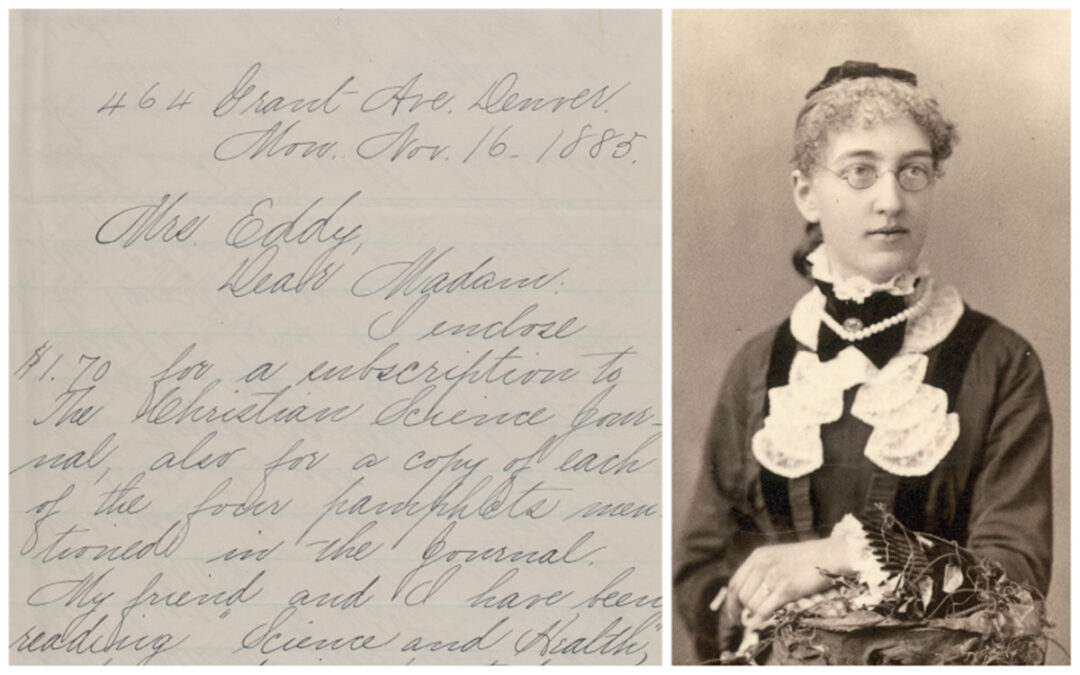 464 Grant Ave. Denver.
Mon. Nov. 16 - 1885.
Mrs. Eddy,
Dear Madam:
I enclose
$1.70 for a subscription to
The Christian Science Jour-
nal, also for a copy of each
of the four pamphlets men-
tioned in the Journal.
My friend and I have been
reading "Science and Health,"